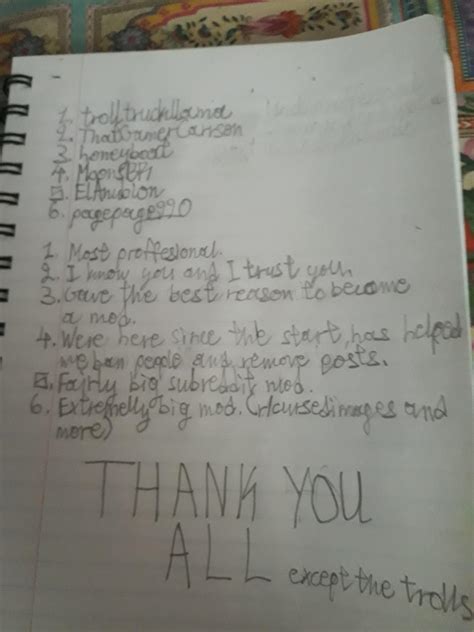 1. trolltruckllama
2. ThatGamerCarson
3. honeyboat
4.
5.
6. pagepage990
1. Most proffesional.
2. I know you and I trust you.
3. Gave the best reason to become
a mod.
4. Were here since the start, has helped
me ban people and remove posts.
5. Fairly big subreddit mod.
6. Extremelly big mod. (r/cursedimages and
more)
THANK YOU
ALL except the trolls